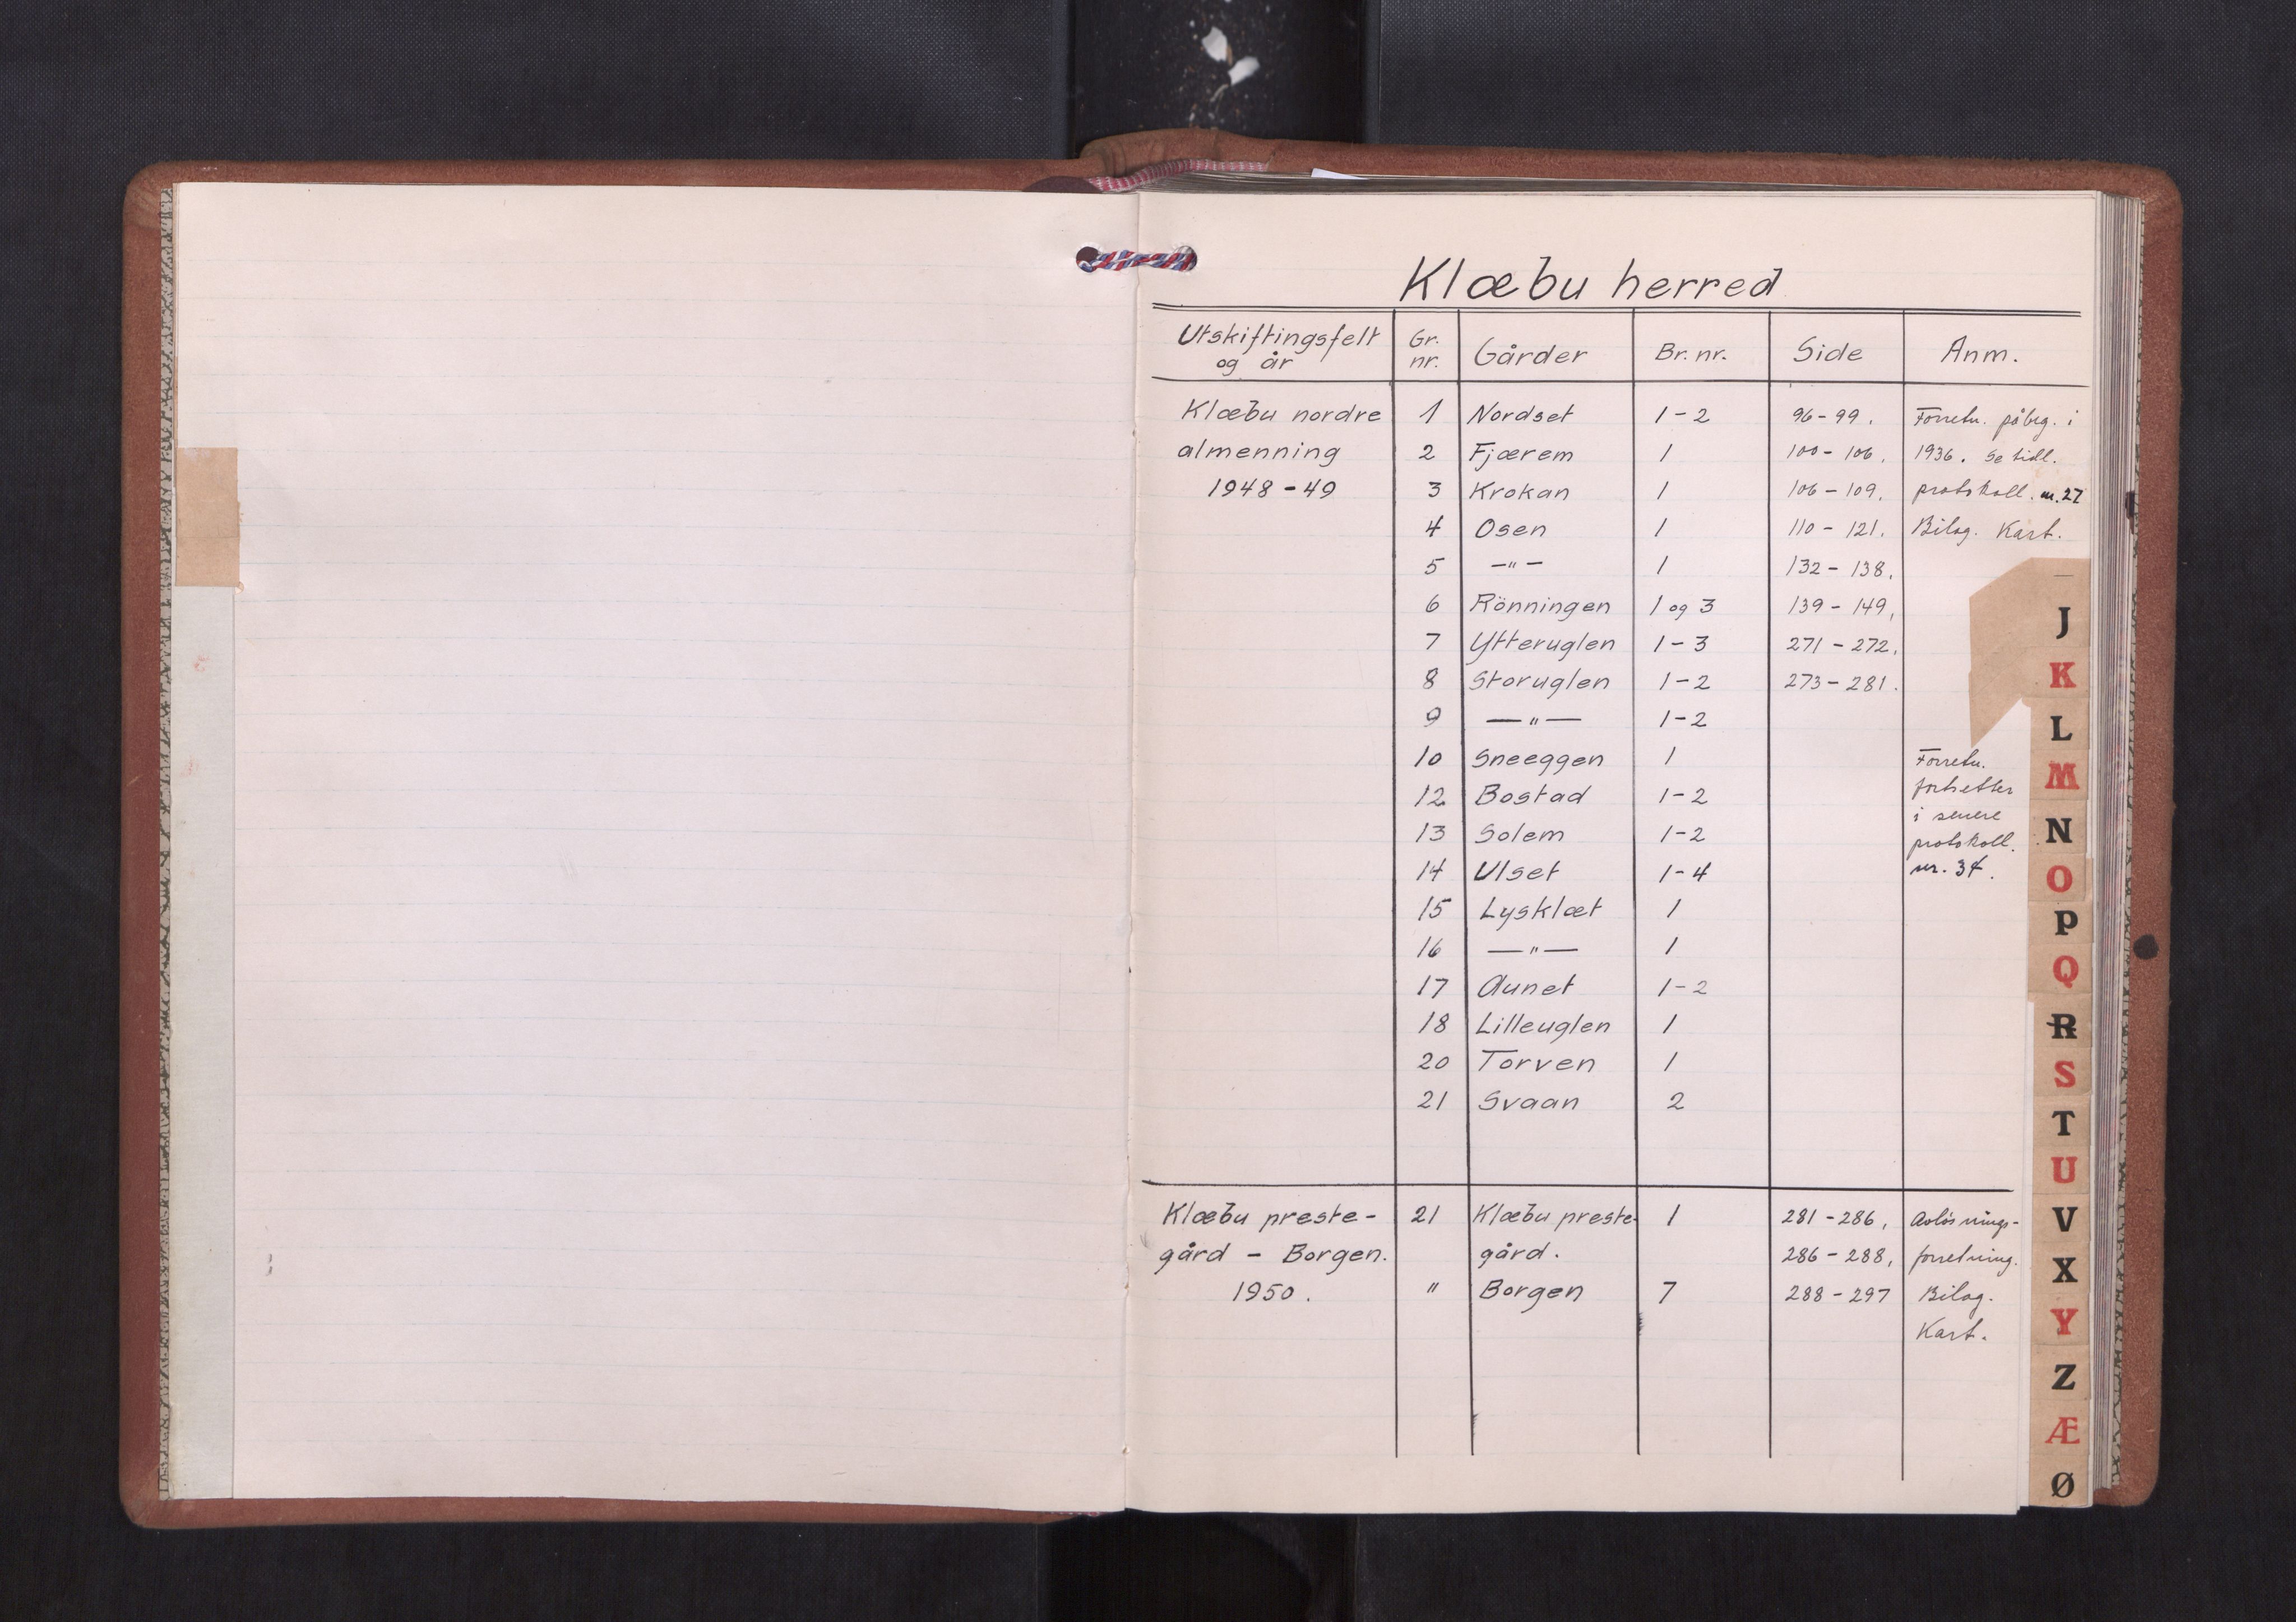 Klæbu herred
Utskiftingsfelt og år | Gr. nr. | Gårder | Br. nr. | Side | Anm.
Klæbu nordre | 1 | Nordset | 1-2 | 96-99. | Forretn. påbeg. i
almenning | 2 | Fjærem | 1 | 100-106. | 1936. Se tidl.
1948-49 | 3 | Krokan | 1 | 106-109. | protokoll. nr. 27
4 | Osen | 1 | 110-121. | Bilag. Kart.
5 | —"— | 1 | 132-138.
6 | Rönningen | 1 og 3 | 139-149.
7 | Ytteruglen | 1-3 | 271-272.
8 | Storuglen | 1-2 | 273-281.
9 | —"— | 1-2
10 | Sneeggen | 1 | Forretn.
12 | Bostad | 1-2 | fortsetter
i senere
13 | Solem | 1-2 | protokoll.
14 | Ulset | 1-4 | nr. 34.
15 | Lysklæt | 1
16 | —"— | 1
17 | Aunet | 1-2
18 | Lilleuglen | 1
20 | Torven | 1
21 | Svaan | 2
Klæbu preste- | 21 | Klæbu preste- | 1 | 281-286, | Avløsnings-
gård - Borgen. | gård. | 286-288, | forretning.
1950. | " | Borgen | 7 | 288-297 | Bilag.
Kart.
J
K
L
M
N
O
P
Q
R
S
T
U
V
X
Y
Z
Æ
Ø